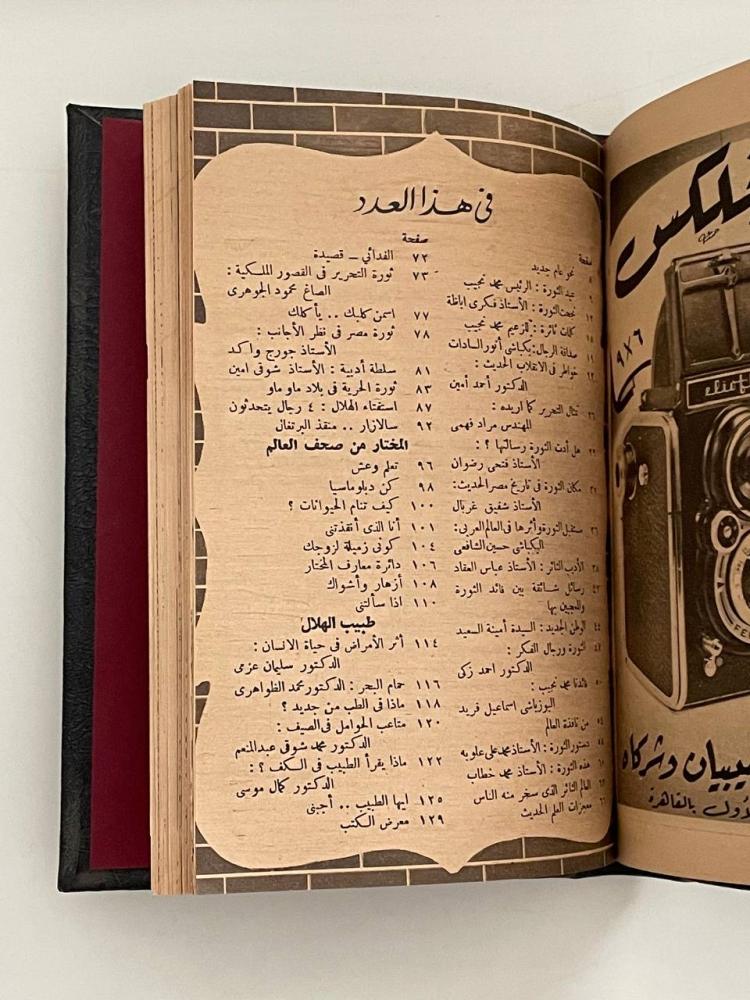 في هذا العدد
صفحة
٨ نحو عام جديد
٩ عيد الثورة : الرئيس محمد نجيب
١٢ نجحت الثورة : الأستاذ فكرى اباظة
١٥ كلمات ثائرة : للزعيم محمد نجيب
صداقة الرجال : بكباشى أنور السادات
خواطر فى الانقلاب الحديث :
الدكتور أحمد أمين
تمثال التحرير كما اريده :
المهندس مراد فهمى
هل أدت الثورة رسالتها ؟ :
الأستاذ فتحى رضوان
مكان الثورة فى تاريخ مصر الحديث :
الأستاذ شفيق غربال
٣٦ مستقبل الثورة وأثرها فى العالم العربى :
البكباشى حسين الشافعى
٣٨ الأدب الثائر : الأستاذ عباس العقاد
٤٢ رسائل شائقة بين قائد الثورة
والمعجبين بها
٤٤ الوطن الجديد : السيدة أمينة السعيد
الثورة ورجال الفكر :
الدكتور احمد زكى
٥٠ قائدنا محمد نجيب :
اليوزباشى اسماعيل فريد
٥٤ من نافذة العالم
دستور الثورة : الأستاذ محمد على علوبة
هذه الثورة : الأستاذ محمد خطاب
العالم الثائر الذى سخر منه الناس
معجزات العلم الحديث
صفحة
٧٢ الفدائي — قصيدة
٧٣ ثورة التحرير فى القصور الملكية :
الصاغ محمود الجوهرى
٧٧ اسمن كلبك .. يأكلك
٧٨ ثورة مصر فى نظر الأجانب :
الأستاذ جورج واكد
٨١ سلطة أدبية : الأستاذ شوقى امين
٨٣ ثورة الحرية فى بلاد ماو ماو
٨٧ استفتاء الهلال : ٤ رجال يتحدثون
٩٢ سالازار .. منقذ البرتغال
المختار من صحف العالم
٩٦ تعلم وعش
٩٨ كن دبلوماسيا
١٠٠ كيف تنام الحيوانات ؟
١٠١ أنا الذى أنقذتنى
١٠٤ كونى زميلة لزوجك
١٠٦ دائرة معارف المختار
١٠٨ أزهار وأشواك
١١٠ اذا سألتنى
طبيب الهلال
١١٤ أثر الأمراض فى حياة الانسان :
الدكتور سليمان عزمى
١١٦ حمام البحر : الدكتور محمد الظواهرى
١١٨ ماذا فى الطب من جديد ؟
١٢٠ متاعب الحوامل فى الصيف :
الدكتور محمد شوقى عبد المنعم
١٢٢ ماذا يقرأ الطبيب فى الكف ؟ :
الدكتور كمال موسى
١٢٥ ايها الطبيب .. أجبنى
١٢٩ معرض الكتب
٦×٩
يبيان وشركاه
الأول بالقاهرة